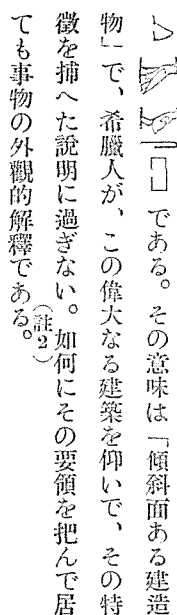 である。その意味は「傾斜面ある建造
物」で、希臘人が、この偉大なる建築を仰いで、その特
徵を捕へた說明に過ぎない。如何にその要領を把んで居
ても事物の外觀的解釋である。(註2)